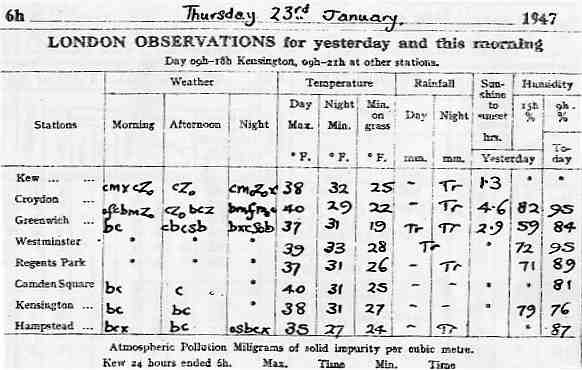 6h Thursday 23rd January, 1947
LONDON OBSERVATIONS for yesterday and this morning
Day 09h-18h Kensington, 09h-21h at other stations.
Weather Temperature Rainfall Sunshine to sunset Humidity
Stations Morning Afternoon Night Day Max. Night Min. Min. on grass Day Night hrs. 15h % 9h. %
°F. °F. °F. mm. mm. Yesterday To-day
Kew ... ... cZ₀ 38 32 25 - Tr 1.3 " "
Croydon ... cZ₀bcZ 40 29 22 - Tr 4.6 82 95
Greenwich ... bc cbcsb 37 31 19 Tr Tr 2.9 59 84
Westminster " " " 39 33 28 Tr " 72 95
Regents Park " " " 37 31 26 - Tr 71 89
Camden Square bc c " 40 31 25 - - " " 81
Kensington ... bc bc " 38 31 27 - - " 79 76
Hampstead ... bcx bc 35 27 24 - Tr " 87
Atmospheric Pollution Miligrams of solid impurity per cubic metre.
Kew 24 hours ended 6h. Max. Time Min. Time